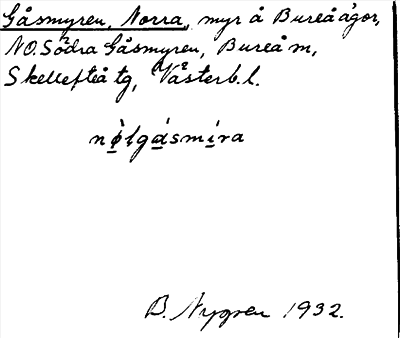 Gåsmyren, Norra, myr å Bureåågor,
NO. Södra Gåsmyren, Bureå m,
Skellefteå tg, Västerb. l.
nǫ̀lgásmira
B. Nygren 1932.